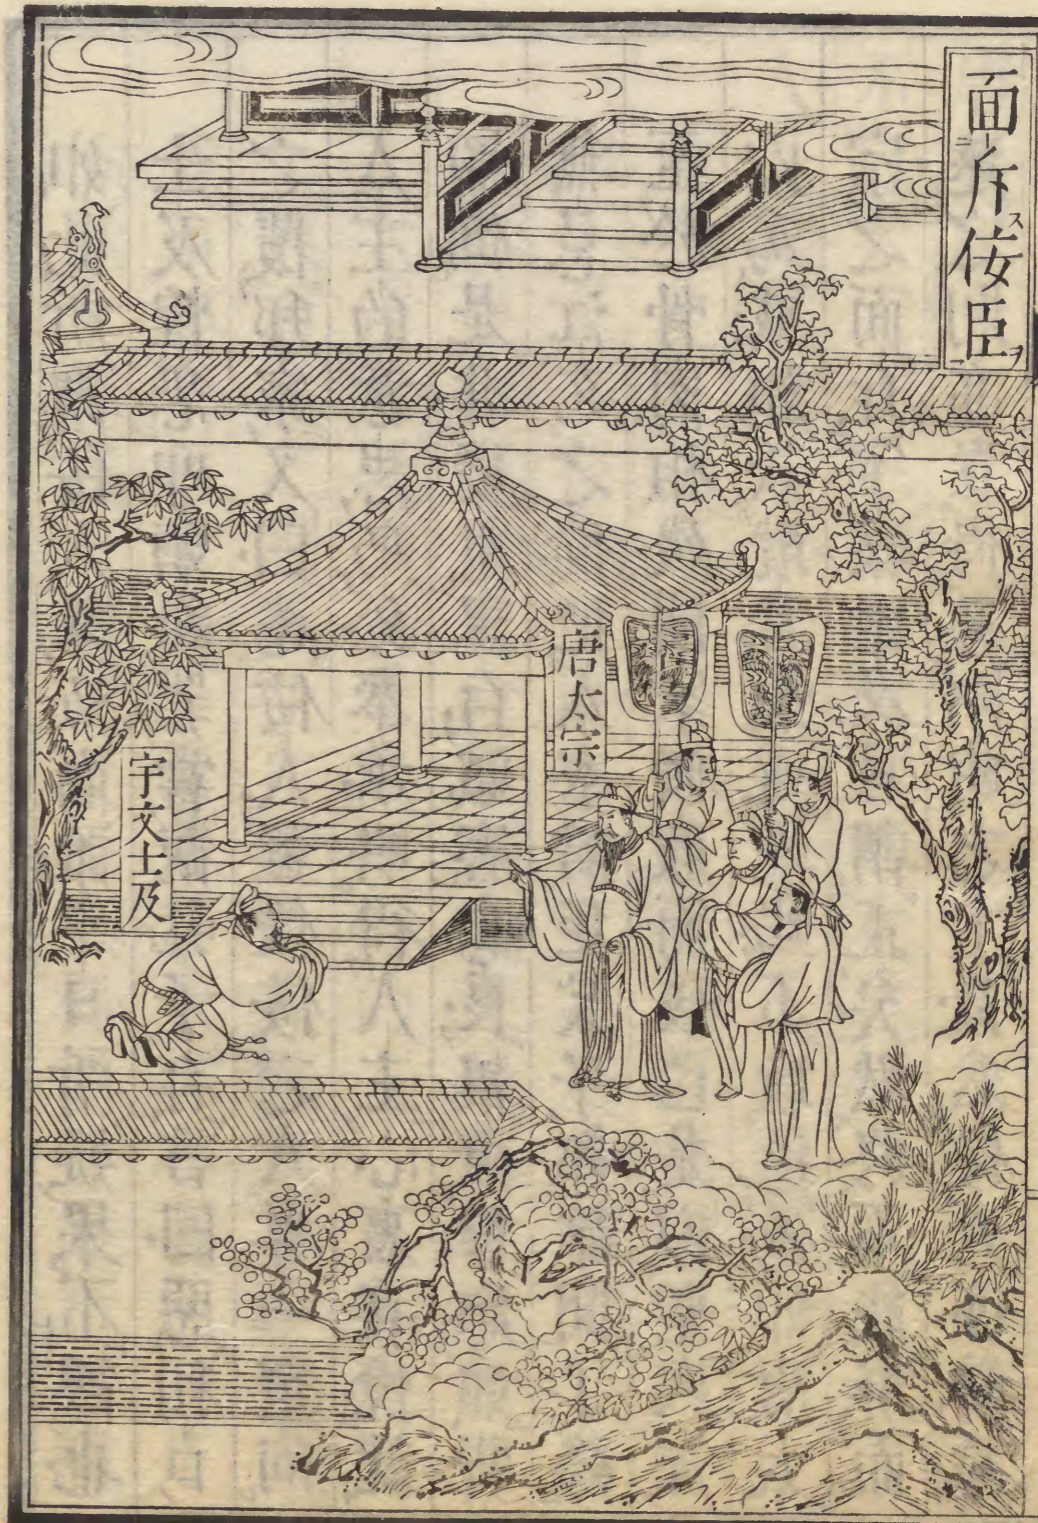 面斥佞臣
唐太宗
宇文士及